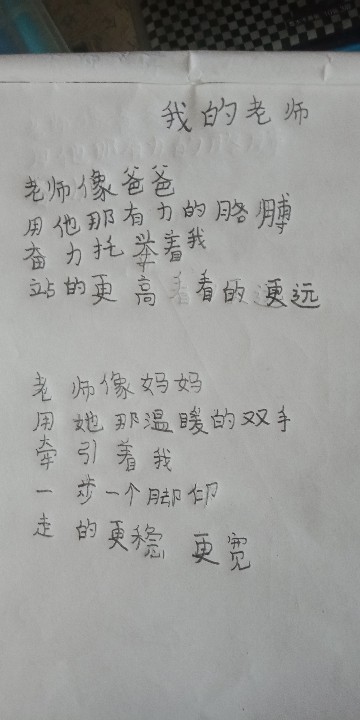 我的老师
老师像爸爸
用他那有力的胳膊
奋力托举着我
站的更高看的更远
老师像妈妈
用她那温暖的双手
牵引着我
一步一个脚印
走的更稳 更宽